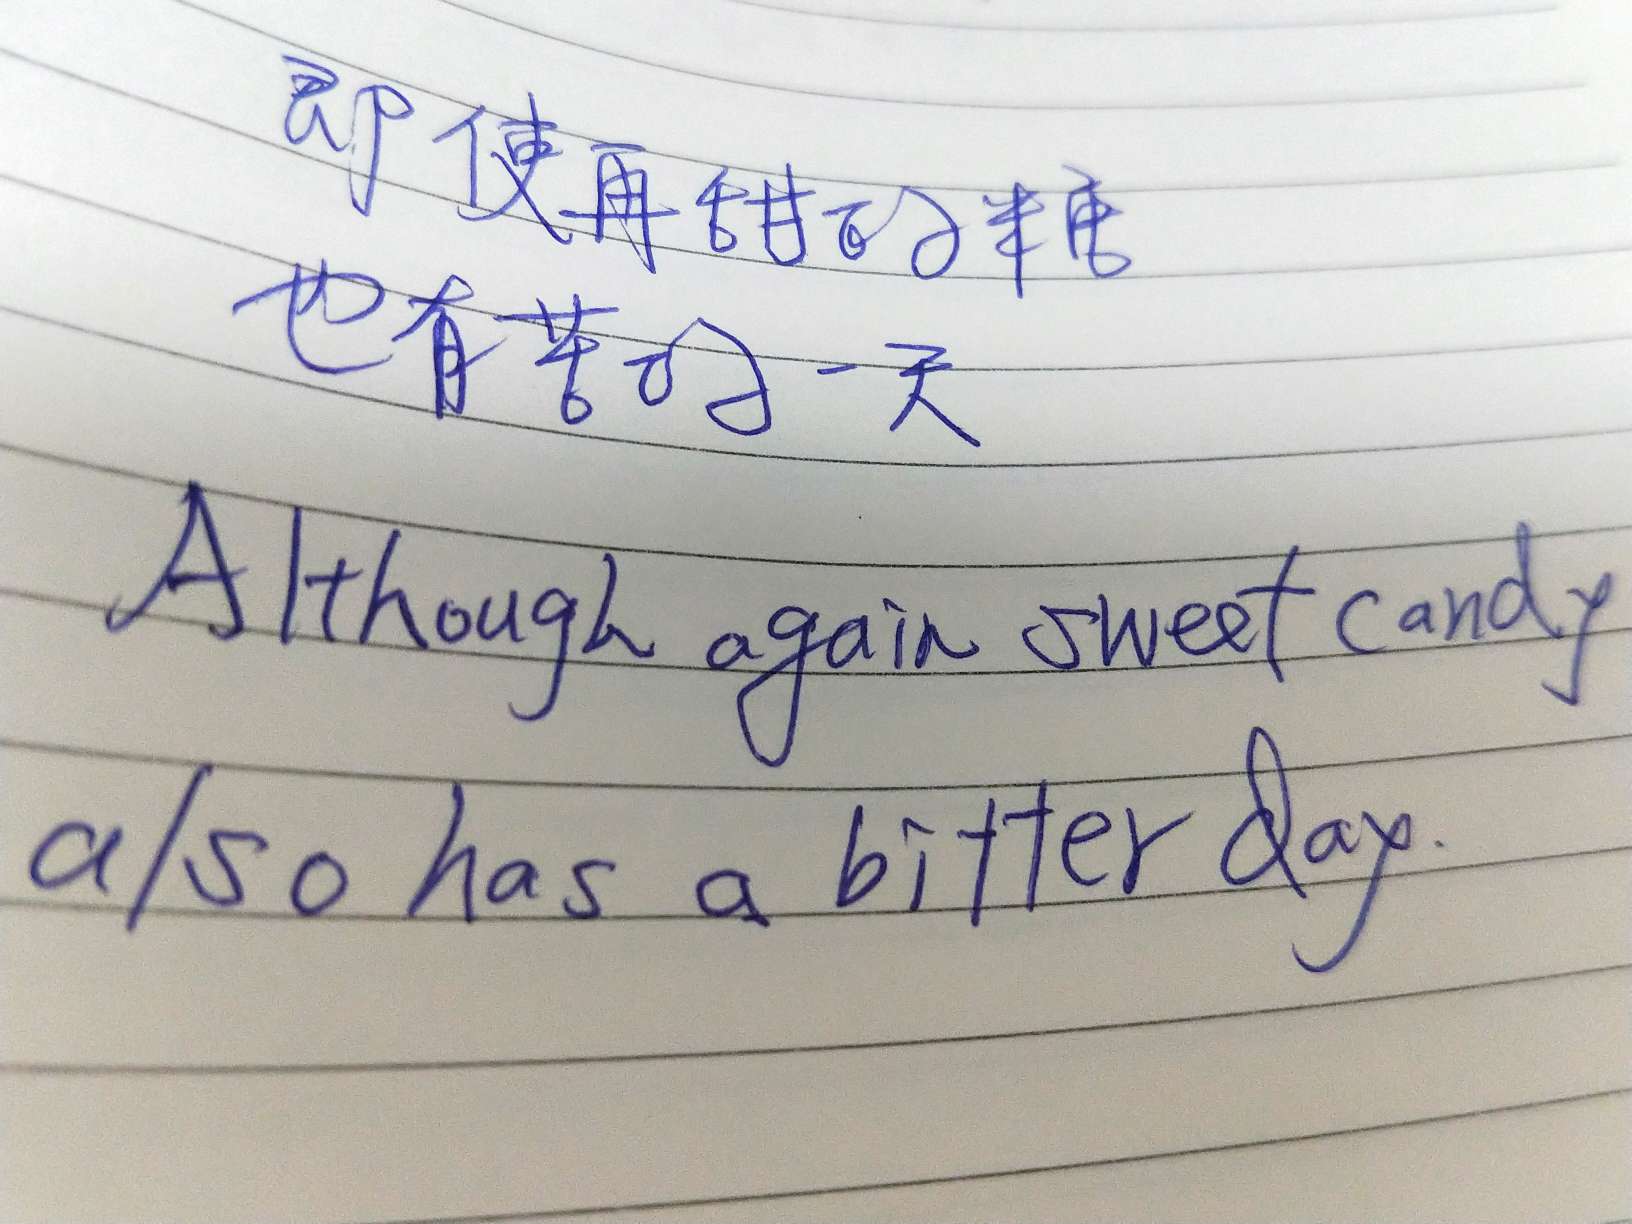 即使再甜的糖
也有苦的一天
Although again sweet candy
also has a bitter day.